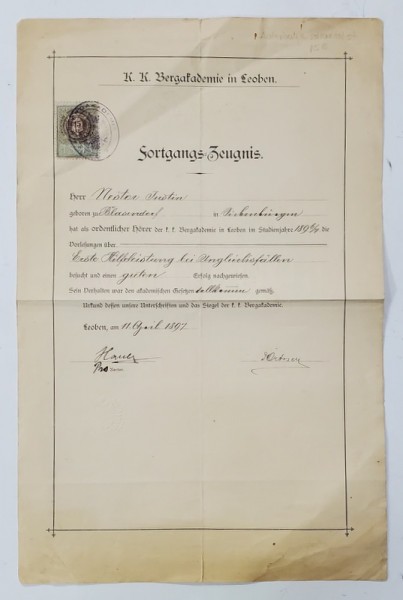 K. K. Bergakademie in Leoben.
Fortgangs-Zeugnis.
Herr Nestor Justin
geboren zu Blasendorf in Siebenbürgen
hat als ordentlicher Hörer der k. k. Bergakademie in Leoben im Studienjahre 1896/7 die
Vorlesungen über
Erste Hilfeleistung bei Unglücksfällen
besucht und einen guten Erfolg nachgewiesen.
Sein Verhalten war den akademischen Gesetzen vollkommen gemäß.
Urkund dessen unsere Unterschriften und das Siegel der k. k. Bergakademie.
Leoben, am 11 April 1897.
Pro Rector